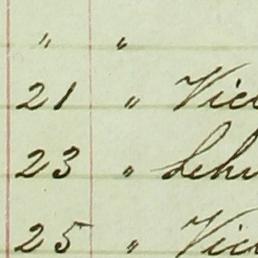 " "
21 " Vic
23 " Leh
25 " Vic